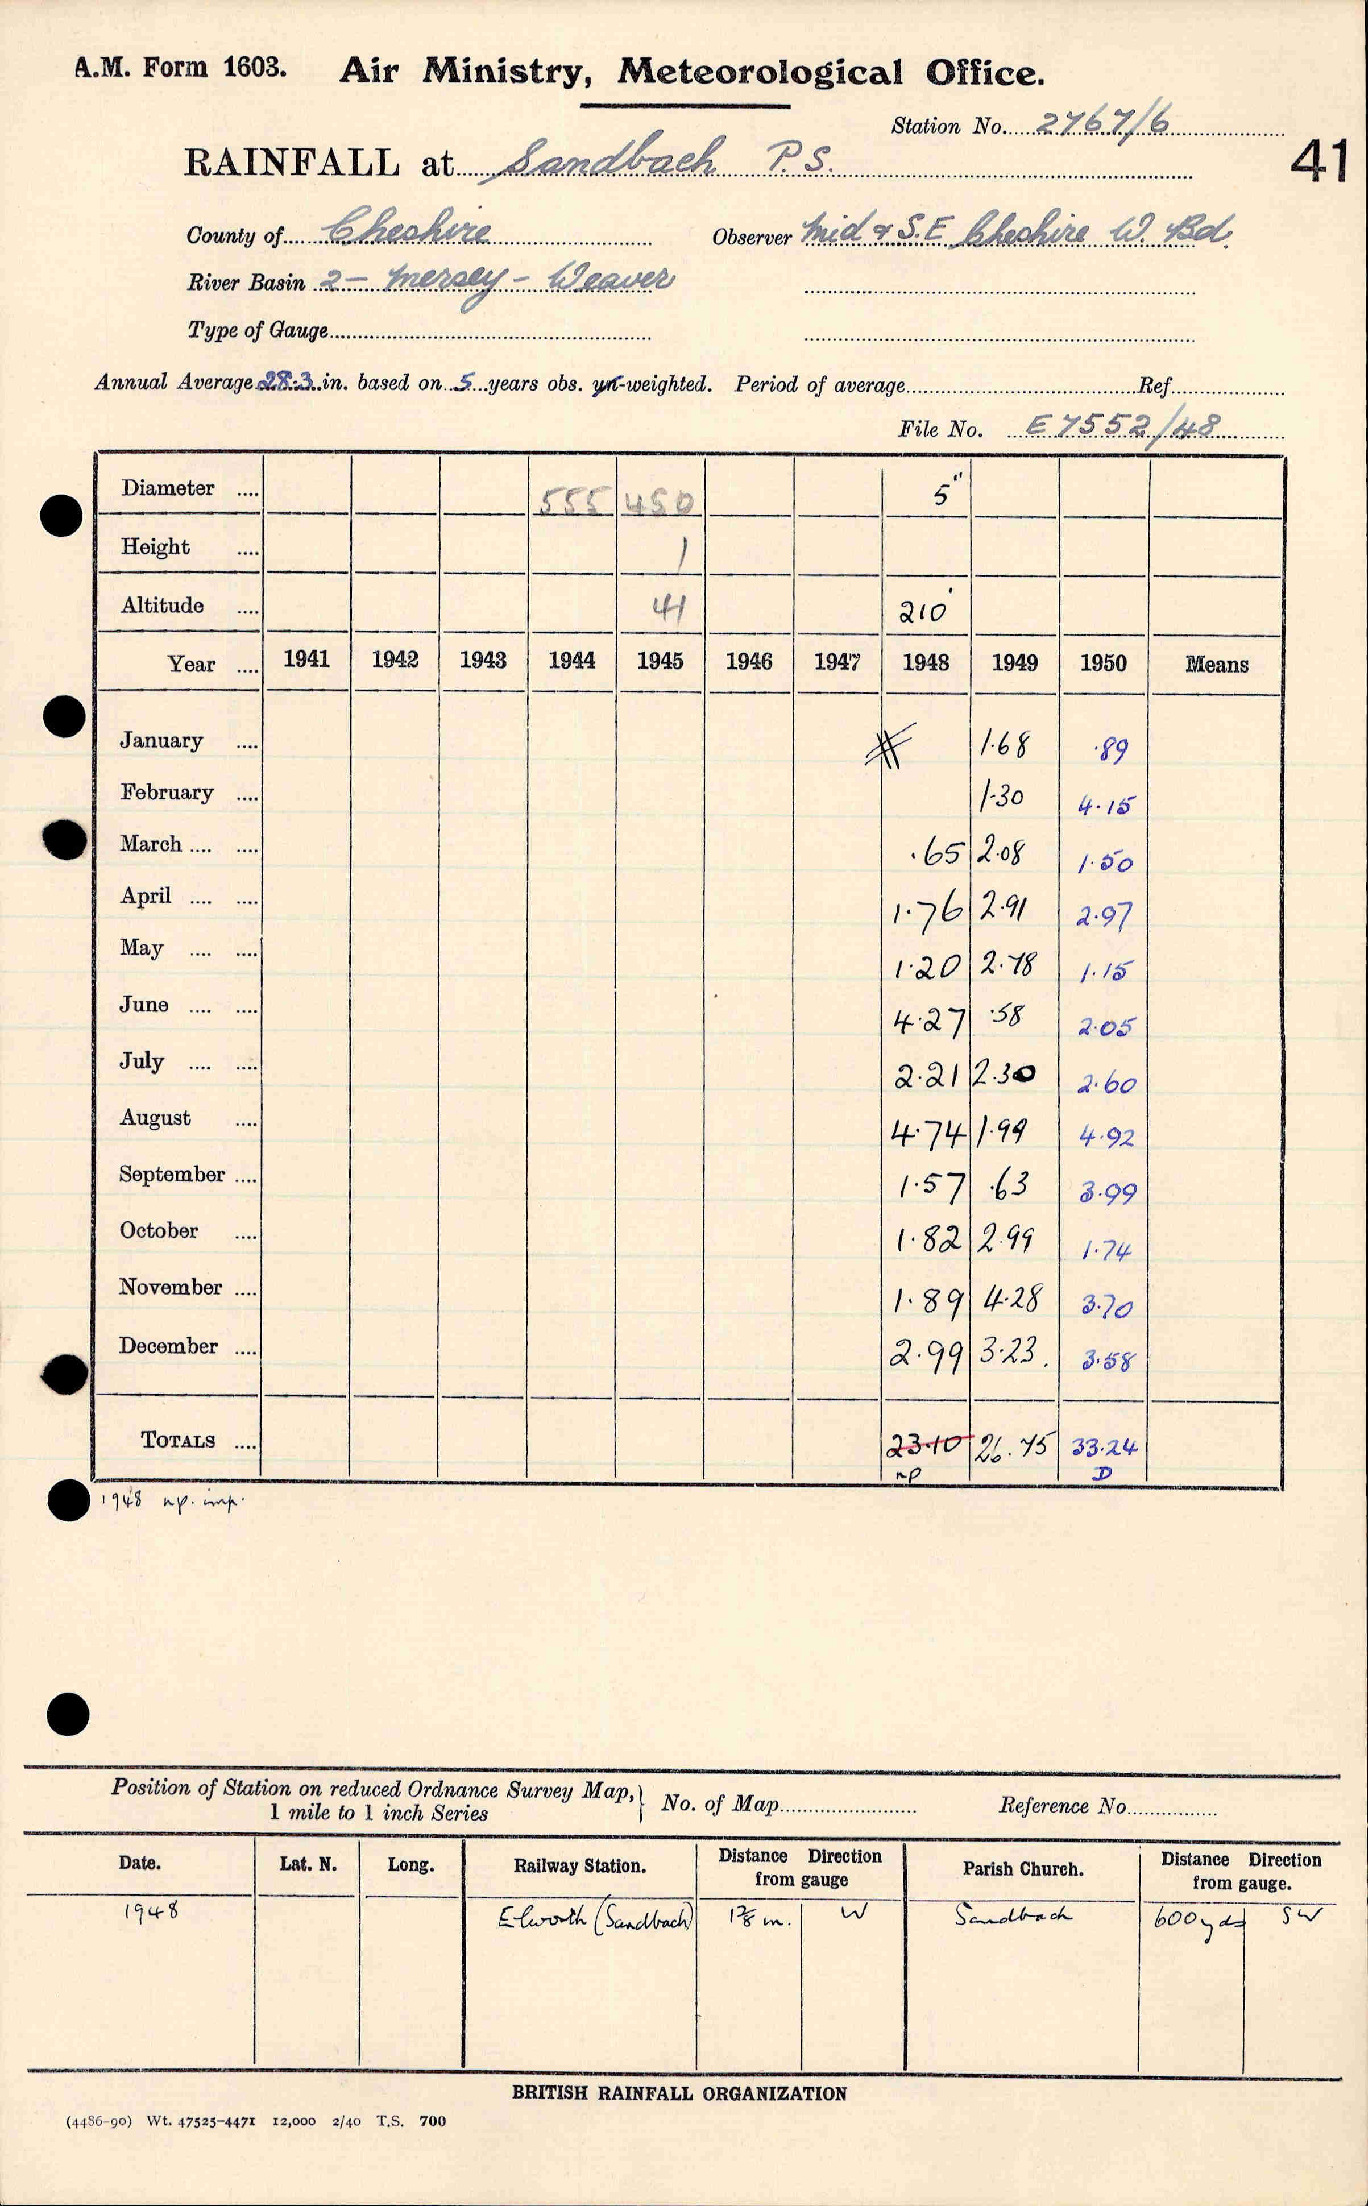 A.M. Form 1603. Air Ministry, Meteorological Office.
Station No. 2767/6
RAINFALL at Sandbach P.S.
41
County of Cheshire Observer Mid & S.E Cheshire W. Bd.
River Basin 2 – Mersey – Weaver
Type of Gauge
Annual Average 28.3 in. based on 5 years obs. un-weighted. Period of average Ref.
File No. E7552/48
Diameter .... 555 450 5"
Height .... 1
Altitude .... 41 210'
Year .... 1941 1942 1943 1944 1945 1946 1947 1948 1949 1950 Means
January .... 1.68 .89
February .... 1.30 4.15
March .... .... .65 2.08 1.50
April .... .... 1.76 2.91 2.97
May .... .... 1.20 2.78 1.15
June .... .... 4.27 .58 2.05
July .... .... 2.21 2.30 2.60
August .... 4.74 1.99 4.92
September .... 1.57 .63 3.99
October .... 1.82 2.99 1.74
November .... 1.89 4.28 3.70
December .... 2.99 3.23 3.58
TOTALS .... 23.10 26.75 33.24
np D
1948 np. imp.
Position of Station on reduced Ordnance Survey Map,
1 mile to 1 inch Series
No. of Map Reference No.
Date. Lat. N. Long. Railway Station. Distance Direction from gauge Parish Church. Distance Direction from gauge.
1948 Elworth (Sandbach) 1⅞ m. W Sandbach 600 yds SW
BRITISH RAINFALL ORGANIZATION
(4486-90) Wt. 47525-4471 12,000 2/40 T.S. 700